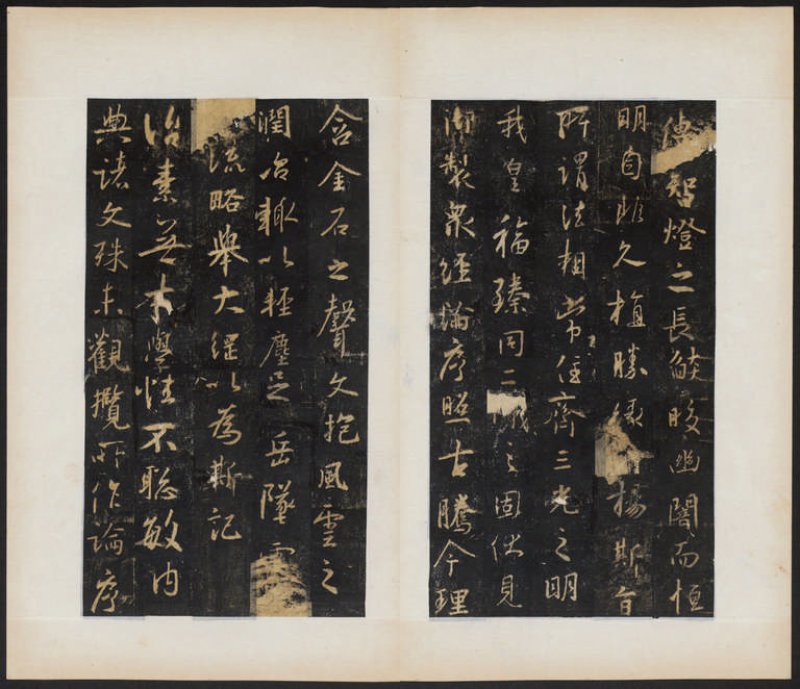 傳智燈之長焰皎幽闇而恒
明自非久植勝緣揚斯旨
所謂法相常住齊三光之明
我皇福臻同二儀之固伏見
御製衆經論序照古騰今理
含金石之聲文抱風雲之
潤治輒以輕塵足岳墜露
流略舉大綱以為斯記
治素無才學性不聰敏內
典諸文殊未觀攬所作論序